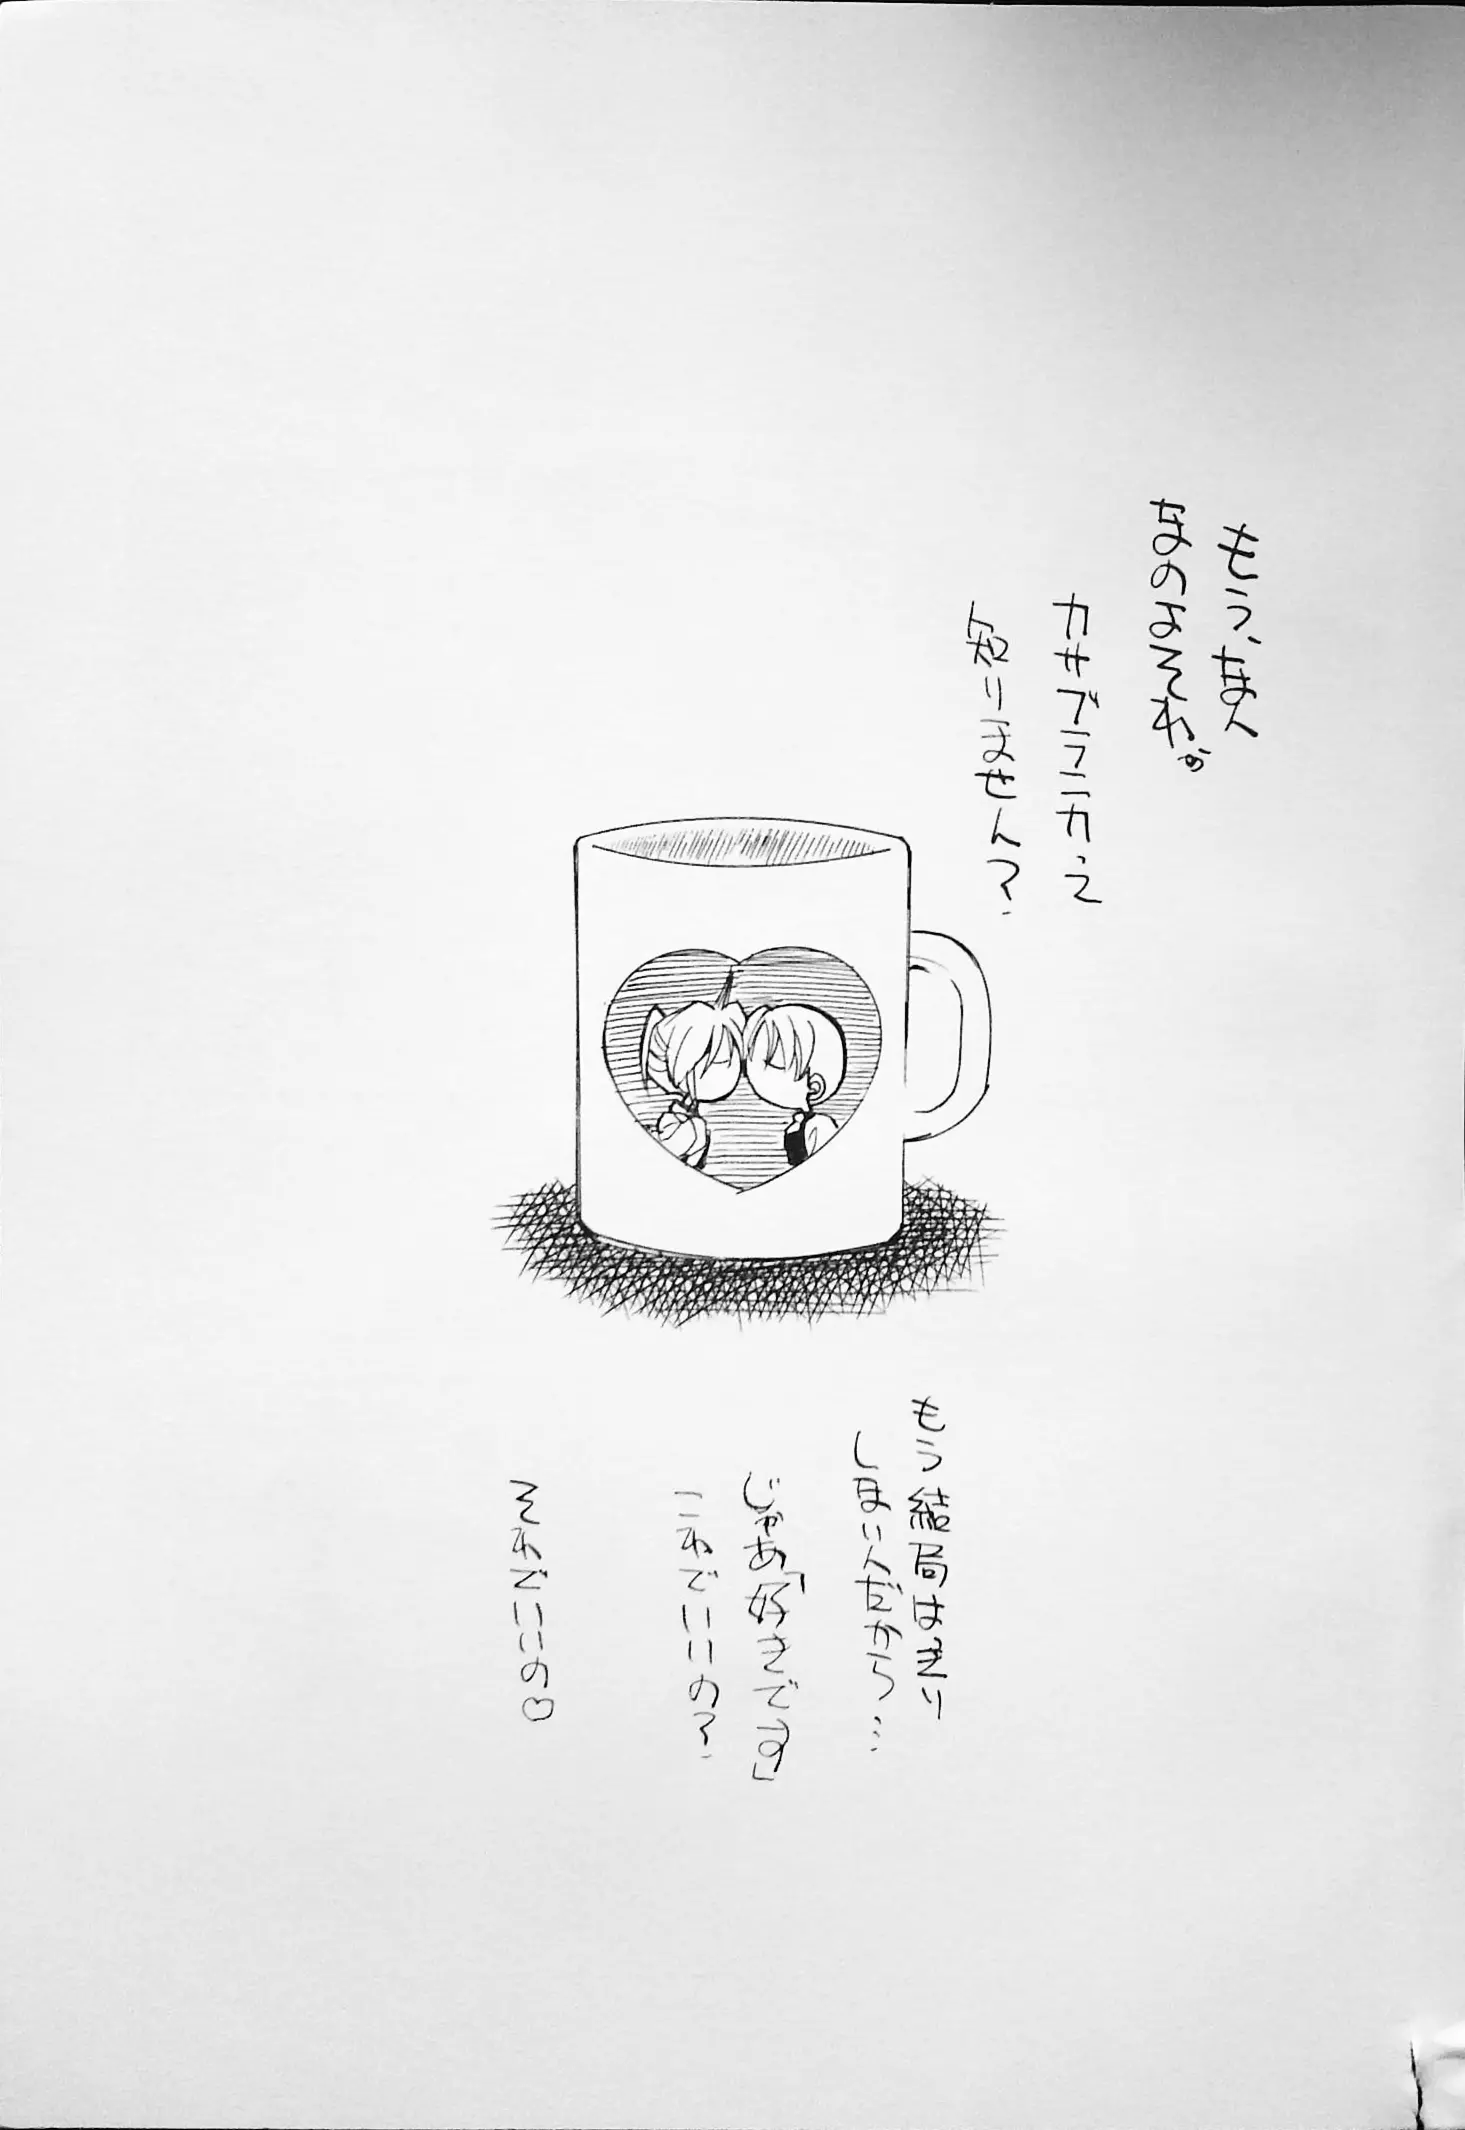 もう、なん
なのよそれぉ
カサブランカって
知りません？
もう結局はっきり
しまい人だから…
じゃあ「好きです」
これでいいの？
それでいいの♡